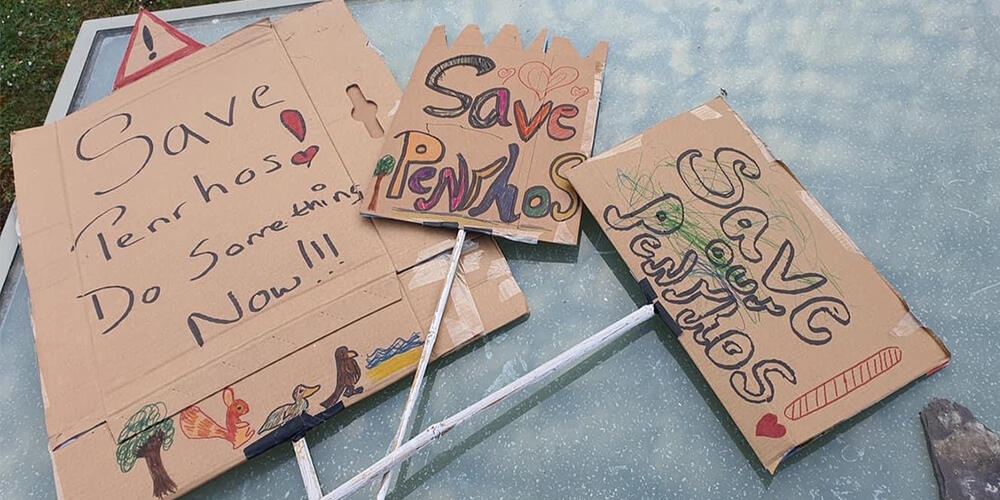 !
Save
Penrhos!
Do Something
Now!!!
Save
Penrhos
Save
our
Penrhos